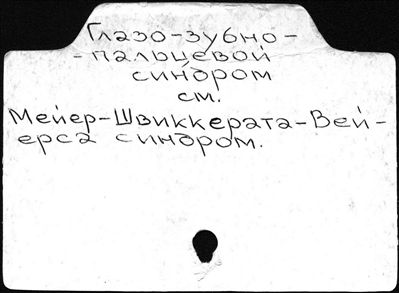 Глазо-зубно-
-пальцевой
синдром
см.
Мейер-Швиккерата-Вей-
ерса синдром.